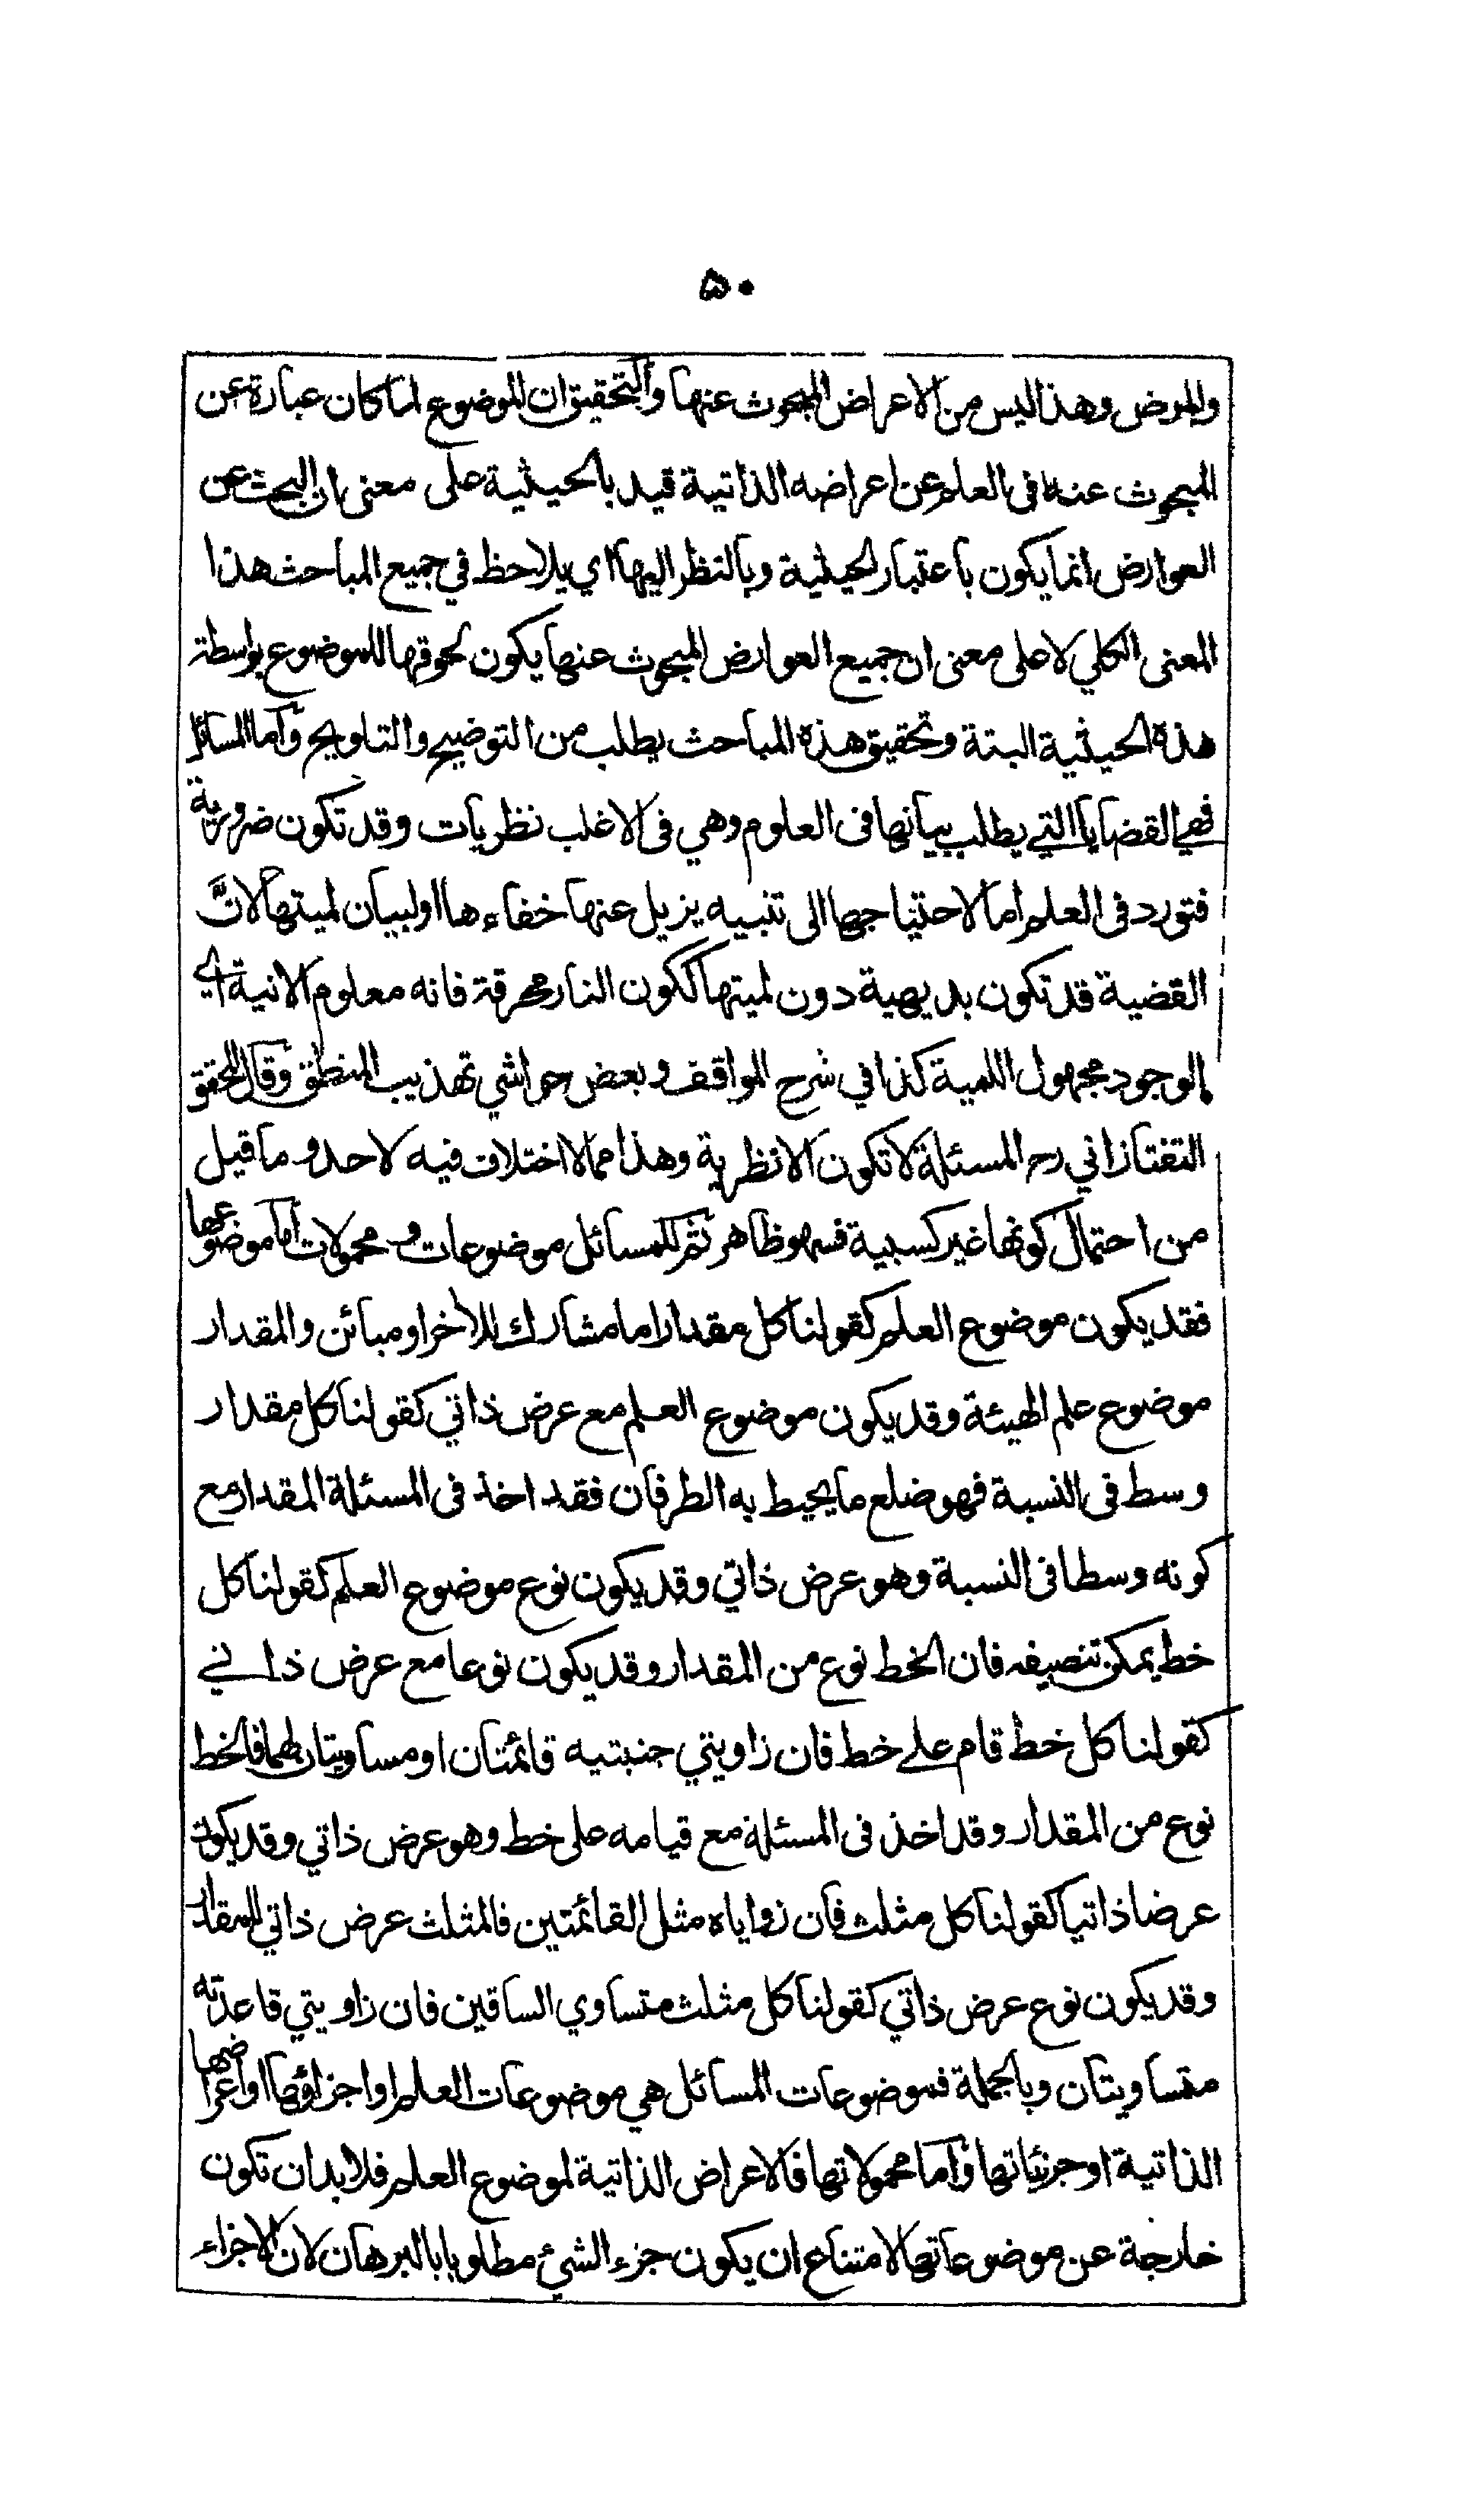 ٥٠
والمرض وهذا ليس من الاعراض المبحوث عنها والتحقيق ان الموضوع لما كان عبارة عن
المبحوث عنه في العلم عن اعراضه الذاتية قيد بالحيثية على معنى ان البحث عن
العوارض انما يكون باعتبار الحيثية وبالنظر اليها اي يلاحظ في جميع المباحث هذا
المعنى الكلي لا على معنى ان جميع العوارض المبحوث عنها يكون لحوقها للموضوع بواسطة
هذه الحيثية البتة وتحقيق هذه المباحث يطلب من التوضيح والتلويح وآما المسائل
فهي القضايا التي يطلب بيانها فى العلوم وهي فى الاغلب نظريات وقد تكون ضرورية
فتورد فى العلم اما لاحتياجها الى تنبيه يزيل عنها خفاءها او لبيان لميتها لانّ
القضية قد تكون بديهية دون لميتها ككون النار محرقة فانه معلوم الانية اي
الوجود مجهول اللمية كذا في شرح المواقف وبعض حواشي تهذيب المنطق وقال المحقق
التفتازاني رح المسئلة لا تكون الا نظرية وهذا مما لا اختلاف فيه لاحد وما قيل
من احتمال كونها غير كسبية فسهو ظاهر ثم للمسائل موضوعات ومحمولات اما موضوعها
فقد يكون موضوع العلم كقولنا كل مقدار اما مشارك للاخر او مبائن والمقدار
موضوع علم الهيئة وقد يكون موضوع العلم مع عرض ذاتي كقولنا كل مقدار
وسط فى النسبة فهو ضلع ما يحيط به الطرفان فقد اخذ فى المسئلة المقدار مع
كونه وسطا فى النسبة وهو عرض ذاتي وقد يكون نوع موضوع العلم كقولنا كل
خط يمكن تنصيفه فان الخط نوع من المقدار وقد يكون نوعا مع عرض ذاتي
كقولنا كل خط قام على خط فان زاويتي جنبتيه قائمتان او مساويتان لهما فالخط
نوع من المقدار وقد اخذ فى المسئلة مع قيامه على خط وهو عرض ذاتي وقد يكون
عرضا ذاتيا كقولنا كل مثلث فان زواياه مثل القائمتين فالمثلث عرض ذاتي للمقدار
وقد يكون نوع عرض ذاتي كقولنا كل مثلث متساوي الساقين فان زاويتي قاعدته
متساويتان وبالجملة فموضوعات المسائل هي موضوعات العلم او اجزاؤها او اعراضها
الذاتية او جزئياتها وآما محمولاتها فالاعراض الذاتية لموضوع العلم فلا بد ان تكون
خارجة عن موضوعاتها لامتناع ان يكون جزء الشئ مطلوبا بالبرهان لان الاجزاء